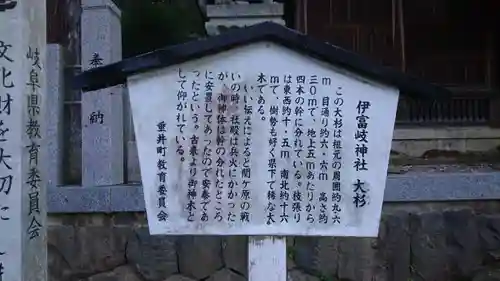 伊富岐神社 大杉
この大杉は根元の周囲約九
m 目通り約六・六m、高さ約
三〇mで、地上五mあたりから
四本の幹に分れている。枝張り
は東西約十・五m、南北約十六
mで、樹勢も好く県下で稀な大
木である。
いい伝えによると関ケ原の戦
いの時、社殿は兵火にかかった
が、御神体は幹に分れたところ
に安置してあったので安泰であ
ったという。古来より御神木と
して仰がれている。
垂井町教育委員会
奉納
岐阜県教育委員会
文化財を大切に